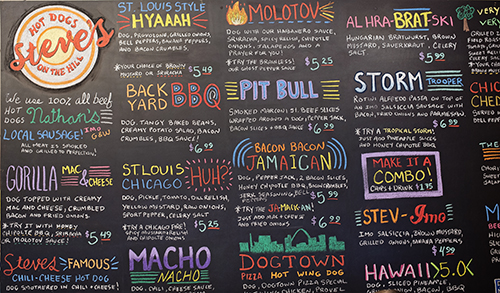 HOT DOGS
Steve's
ON THE HILL
We use 100% all beef
HOT DOGS Nathan's
LOCAL SAUSAGE!
ALL MEAT IS SMOKED
AND GRILLED TO PERFECTION!
GORILLA MAC & CHEESE
DOG TOPPED WITH CREAMY
MAC AND CHEESE, CRUMBLED
BACON AND FRIED ONIONS.
* TRY IT WITH HONEY
CHIPOTLE BBQ, SRIRACHA
OR MOLOTOV SAUCE! $5.49
Steve's FAMOUS
CHILI-CHEESE HOT DOG
DOG SMOTHERED IN CHILI + CHEESE!
ST. LOUIS STYLE
HYAAAH
DOG, PROVOLONE, GRILLED ONIONS
BELL PEPPERS, BANANA PEPPERS,
AND BACON CRUMBLES.
* YOUR CHOICE OF BROWN
MUSTARD OR SRIRACHA $5.49
BACK YARD BBQ
DOG, TANGY BAKED BEANS,
CREAMY POTATO SALAD, BACON
CRUMBLES, BBQ SAUCE!
$6.99
ST LOUIS
CHICAGO HUH?
DOG, PICKLE, TOMATO, DILL RELISH,
YELLOW MUSTARD, RAW ONIONS,
SPORT PEPPER, CELERY SALT
* TRY A CHICAGO FIRE
SPICY MUSTARD, SRIRACHA
AND CHIPOTLE ONIONS $5.25
MACHO
NACHO
DOG, CHILI, CHEESE SAUCE,
MOLOTOV
DOG WITH OUR HABANERO SAUCE,
SRIRACHA, SPICY RELISH, CHIPOTLE
ONIONS, JALAPEÑOS AND A
PRAYER FOR YOU!
* TRY THE BRUNSLEE!
OUR GHOST PEPPER SAUCE $5.25
PIT BULL
SMOKED MARCONI ST. BEEF SLICES
WRAPPED AROUND A DOG, PEPPER JACK,
BACON SLICES + BBQ SAUCE $6.99
BACON BACON
JAMAICAN
DOG, PEPPER JACK, 2 BACON SLICES,
HONEY CHIPOTLE BBQ, BACON CRUMBLES,
JERK SEASONING, BELL PEPPERS $5.99
* TRY THE JA-MAK-AN!
JUST ADD MAC + CHEESE
AND FRIED ONIONS $6.25
DOGTOWN
PIZZA HOT WING DOG
DOG, DOGTOWN PIZZA SPECIAL
AL HRA-BRAT-SKI
HUNGARIAN BRATWURST, BROWN
MUSTARD, SAUERKRAUT, CELERY
SALT $5.99
STORM TROOPER
ROTINI ALFREDO PASTA ON TOP OF
AN IMO SALSICCIA SAUSAGE WITH
BACON, CHIVES AND PARMESAN.
$6.99
* TRY A TROPICAL STORM:
JUST ADD PINEAPPLE SLICES
AND HONEY CHIPOTLE BBQ
MAKE IT A
COMBO!
CHIPS & DRINK $1.75
STEV-Imo
IMO SALSICCIA, BROWN MUSTARD,
GRILLED ONIONS, BANANA PEPPERS
HAWAII 5.0
DOG, SLICED PINEAPPLE,